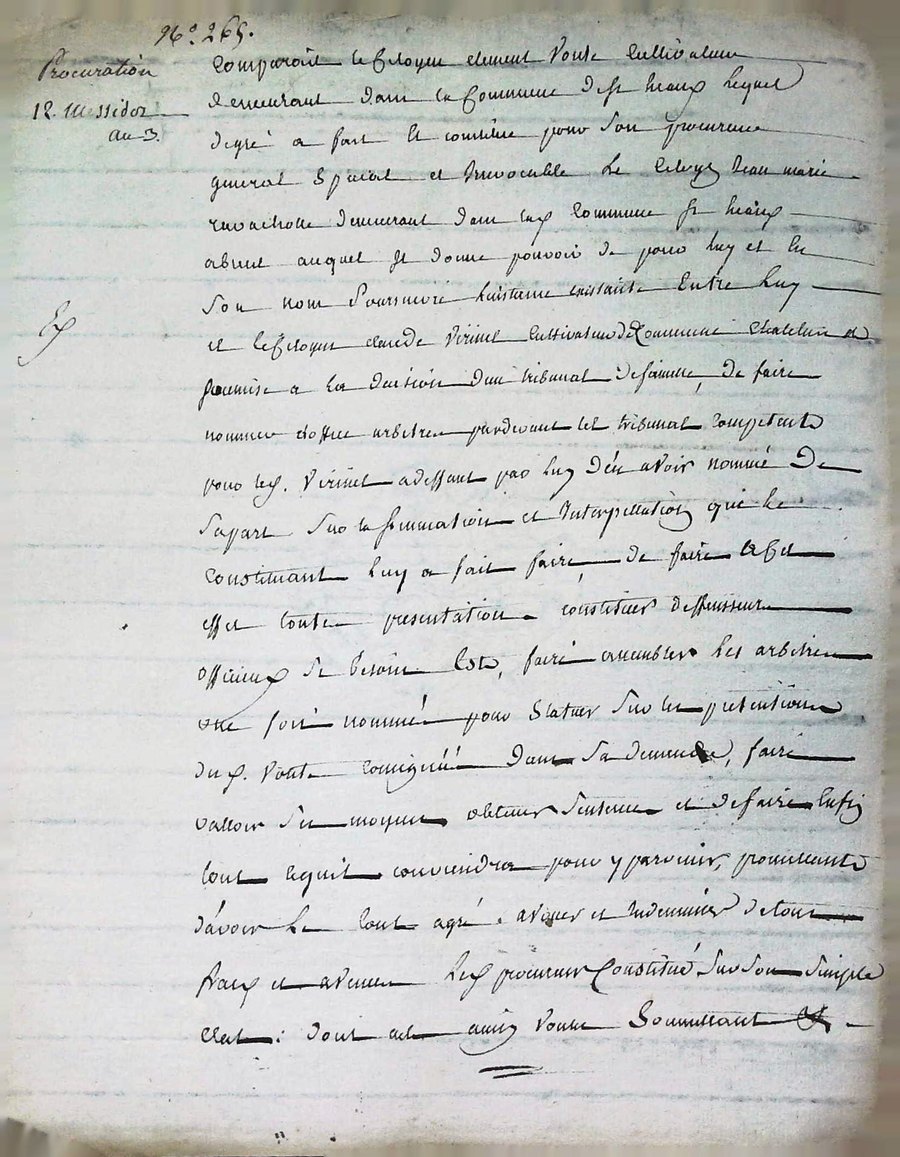 N.° 265.
Procuration
12. Messidor
an 3.
Comparoit le Citoyen clement Voute Cultivateur
demeurant dans la Commune de st heaux lequel
degré a fait et constitue pour Son procureur
general Special et Irrevocable le Citoyen Jean marie
ravacholle demeurant dans la Commune st heaux
absent auquel Il donne pouvoir de pour luy et En
Son nom Poursuivre Linstance Existante Entre Luy
et le Citoyen claude Virinel Cultivateur de Commune Chatelus et
Soumise a la decision d'un tribunal de famille, de faire
nommer d'office arbitre pardevant le tribunal Competent
pour led. Virinel a deffaut par luy d'en avoir nommé De
Sa part Sur la Sommation et Interpellation que le
Constituant luy a fait faire de faire a Cet
effet toute presentation, constituer deffenseur
officieux Si besoin Est, faire assembler les arbitres
une fois nommés pour Statuer Sur les pretentions
dud. Voute consignées Dans Sa demande, faire
valloir Ses moyens, obtenir Sentence et de faire Enfin
tout cequil conviendra pour y parvenir, promettant
d'avoir le tout agré. avouer et Indemniser de tous
fraix et avances led. procureur Constitué Sur Son Simple
Etat: dont acte ainsy Voulu Soumettant